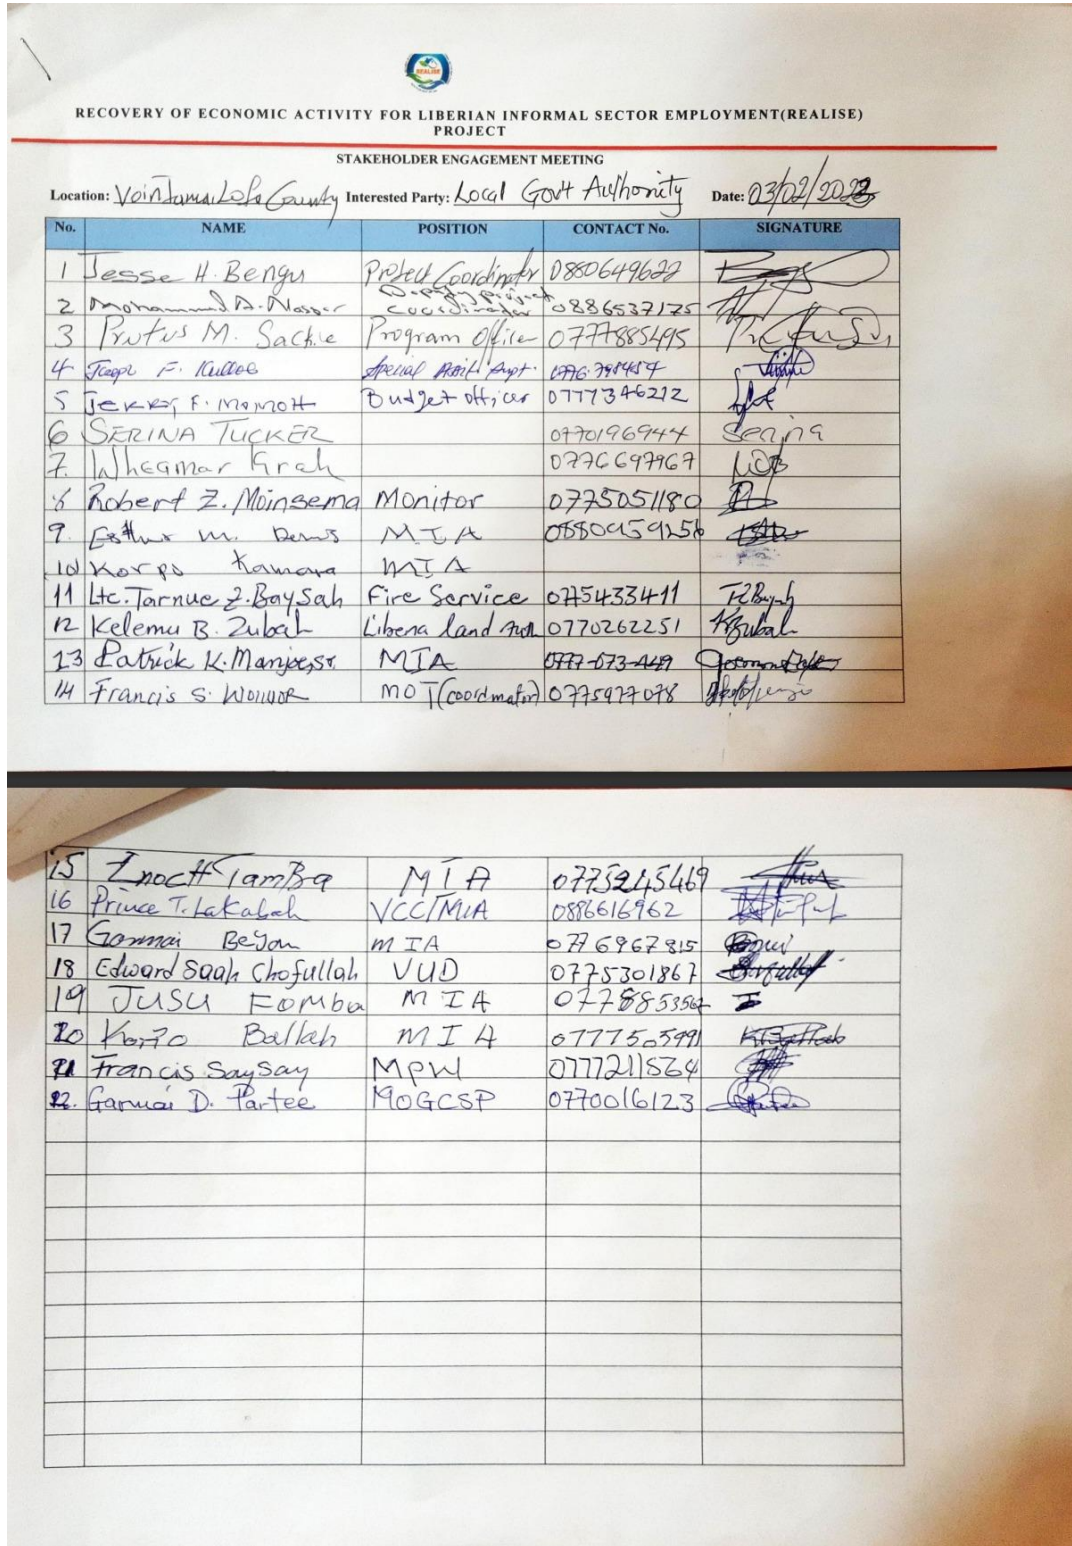 REALISE
RECOVERY OF ECONOMIC ACTIVITY FOR LIBERIAN INFORMAL SECTOR EMPLOYMENT(REALISE)
PROJECT
STAKEHOLDER ENGAGEMENT MEETING
Location: Voinjama, Lofa County Interested Party: Local Gov't Authority Date: 03/02/2023
No. NAME POSITION CONTACT No. SIGNATURE
1 Jesse H. Bengu Project Coordinator 0880649622
2 Mohammed A. Nasser Deputy project coordinator 0886537175
3 M. Sackie Program Officer 0777885495
4 F. Special Supt.
5 Jerry F. Momoh Budget officer 0777346212
6 SERINA TUCKER 0770196944 Serina
7. Grah 0776697967
8 Robert Z. Moinsema Monitor 0775051180
9. Esther M. MIA
10 Korpo Kamara MIA
11 Ltc. Tarnue Z. Baysah Fire Service T Z Baysah
12 Kelemu B. Zubah Liberia land Auth 0770262251 KBzubah
13 Patrick K. Manjoe, sr. MIA 0777-073-449
14 Francis S. MOT (coordinator) 0775977078
15 Enoch Tamba MIA 0775245469
16 Prince T. Lakabah VCC/MIA 0886616962
17 Gormai Beyan MIA 0776967815
18 Edward Saah Chofullah VUD 0775301867
19 JUSU Fomba MIA
20 Korto Ballah MIA
21 Francis SaySay MPW 0777211564
22. Garmai D. Partee MOGCSP 0770016123